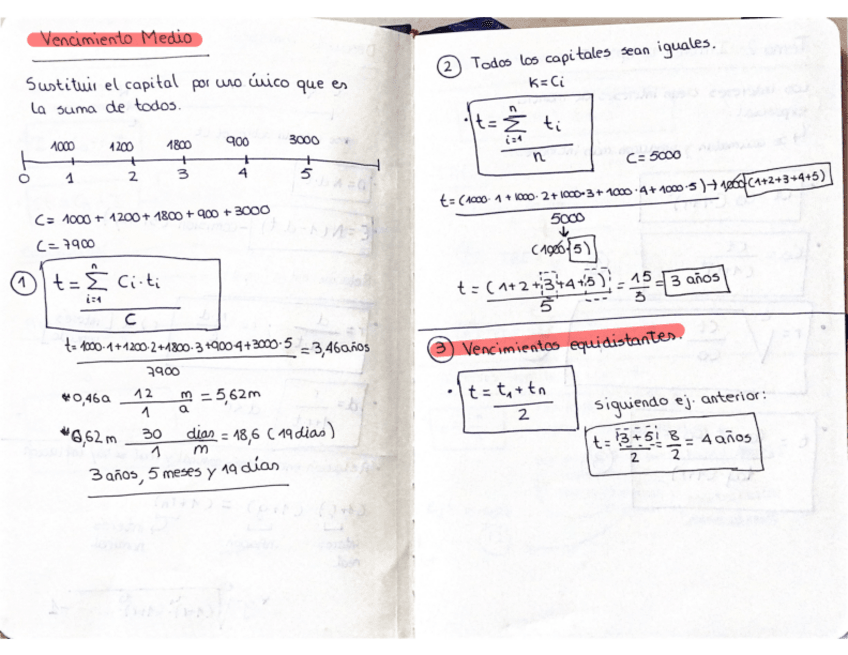 Vencimiento Medio
Sustituir el capital por uno único que es
la suma de todos.
1000 1200 1800 900 3000
0 1 2 3 4 5
C = 1000 + 1200 + 1800 + 900 + 3000
C = 7900
① t = n ∑ i=1 Ci · ti
C
t = 1000·1 + 1200·2 + 1800·3 + 900·4 + 3000·5 = 3,46 años
7900
*0,46a 12 m = 5,62m
1 a
*0,62m 30 días = 18,6 (19 días)
1 m
3 años, 5 meses y 19 días
② Todos los capitales sean iguales.
K = Ci
· t = n ∑ i=1 ti
n
C = 5000
t = (1000·1 + 1000·2 + 1000·3 + 1000·4 + 1000·5) → 1000·(1+2+3+4+5)
5000
↓
(1000·5)
t = (1+2+3+4+5) = 15 = 3 años
5 3
③ Vencimientos equidistantes.
· t = t1 + tn
2
Siguiendo ej. anterior:
t = 3+5 = 8 = 4 años
2 2